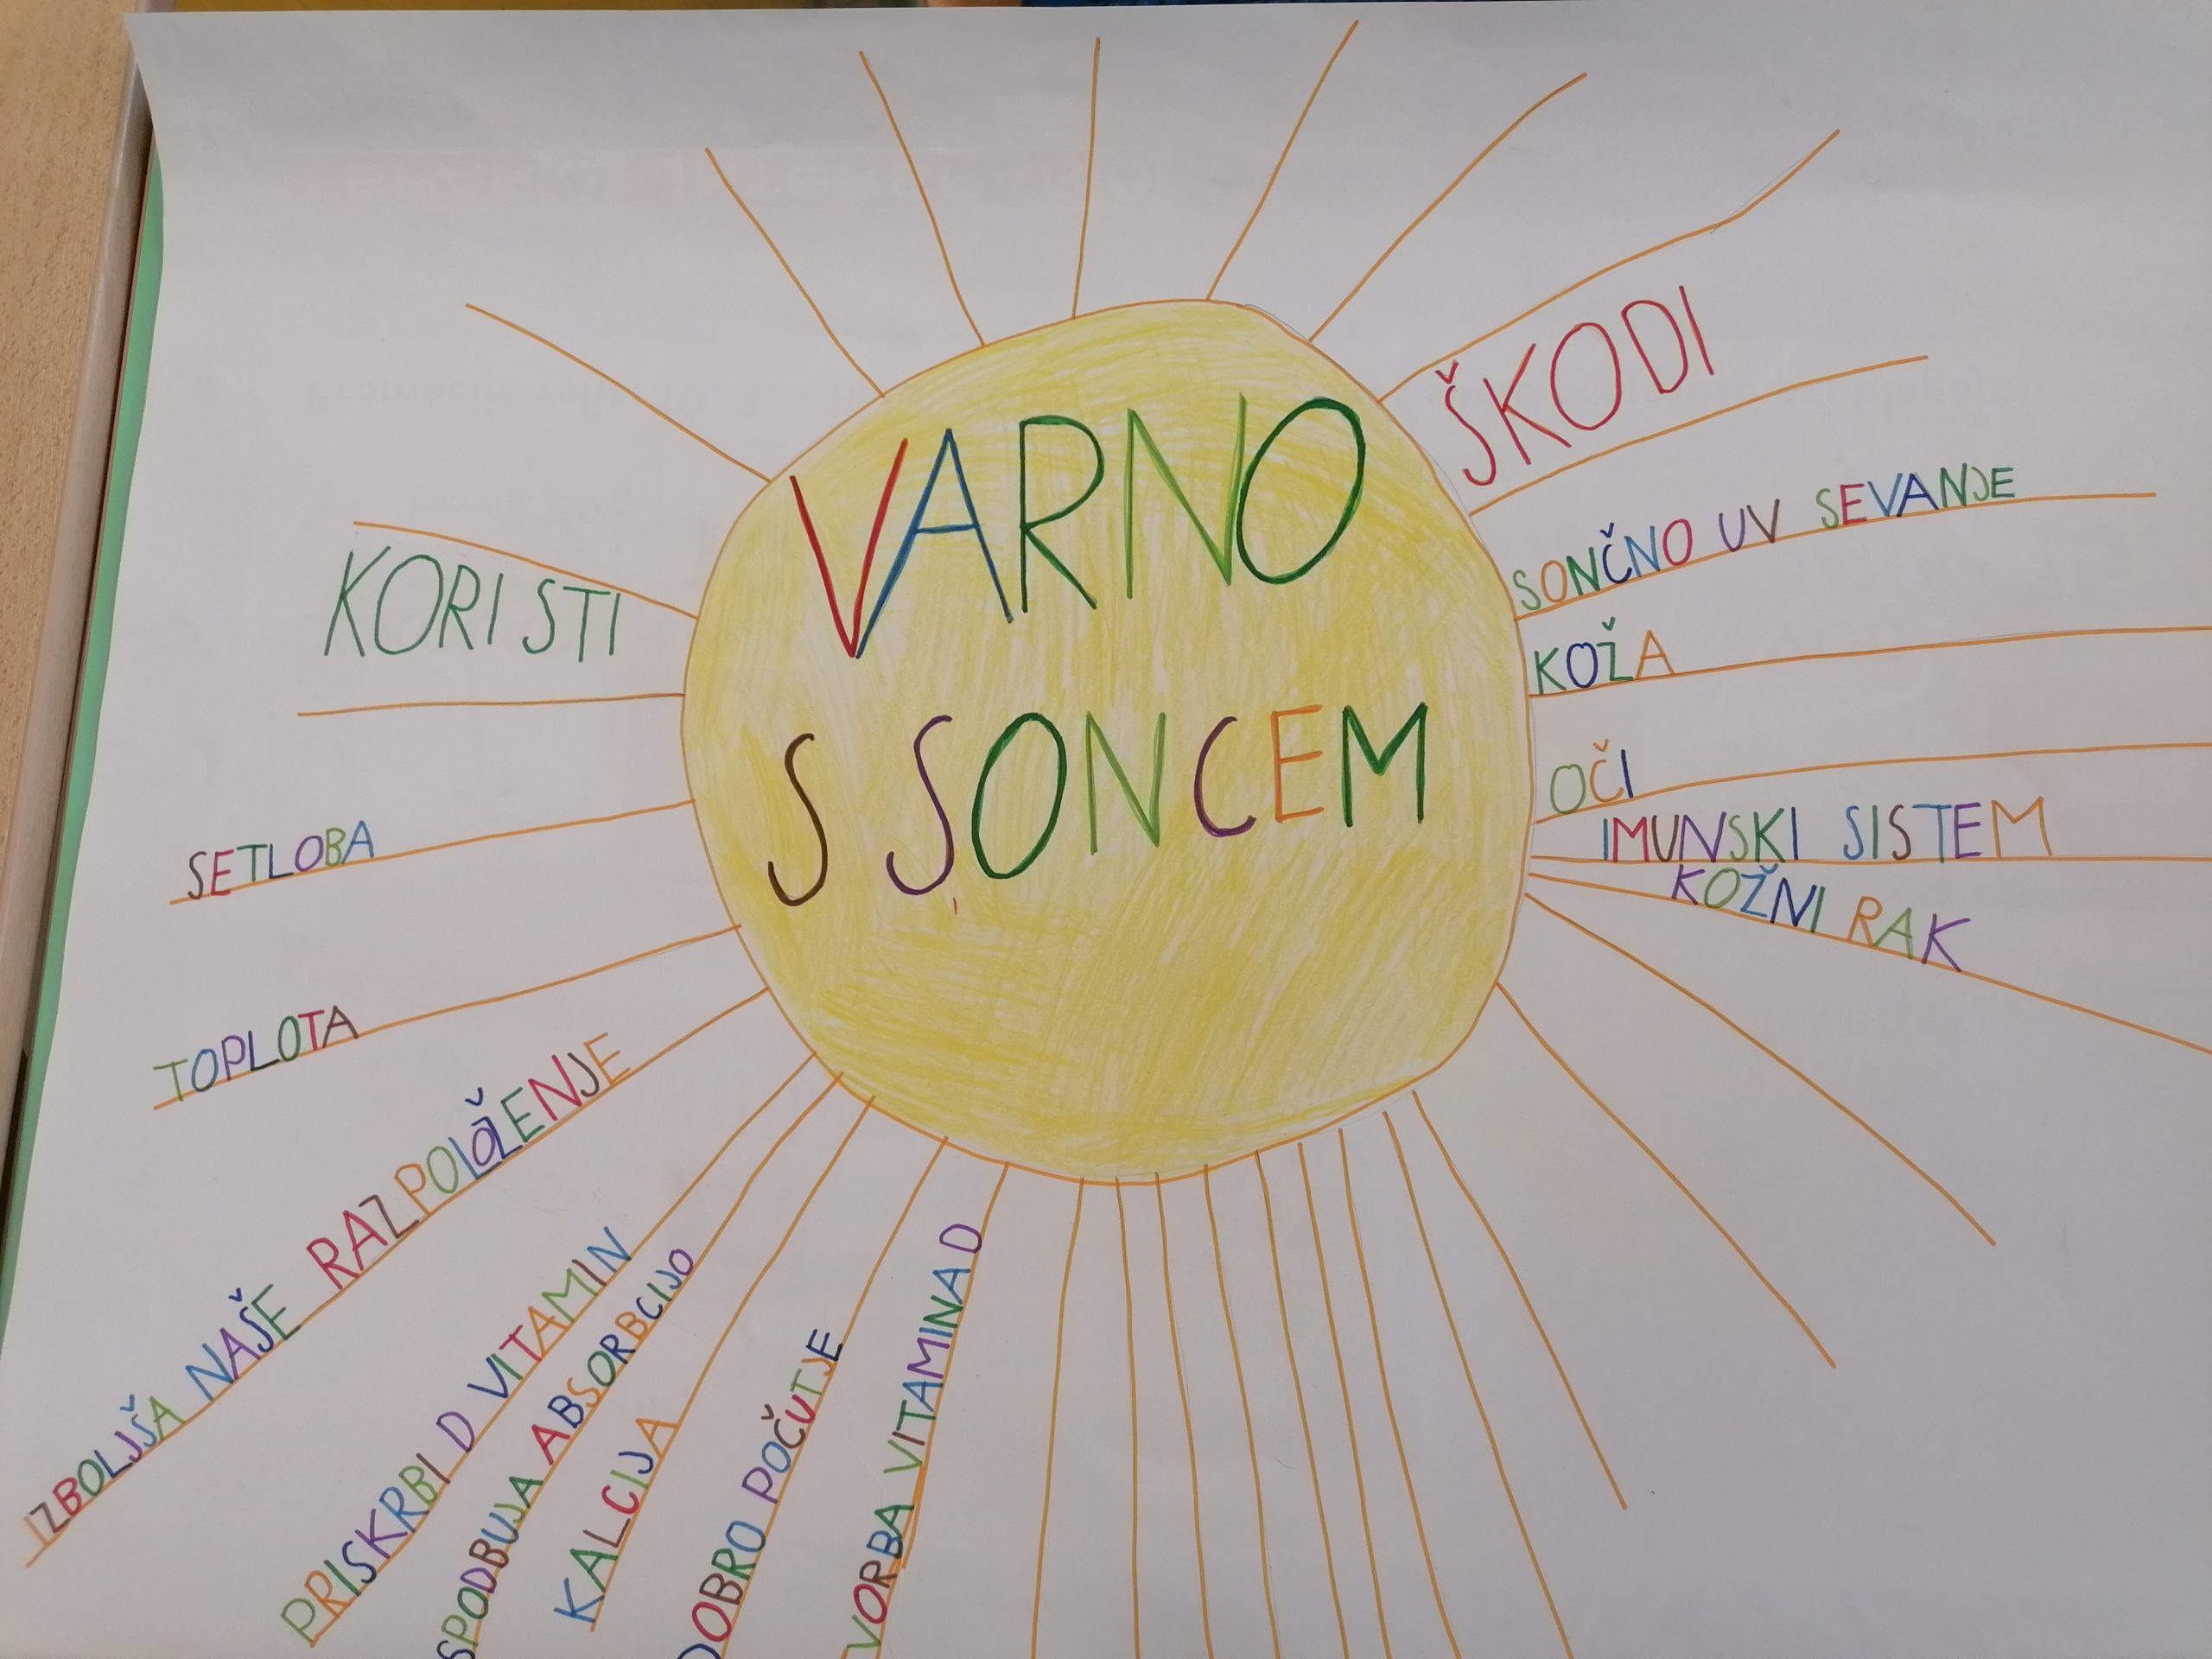 VARNO
S SONCEM
KORISTI
SETLOBA
TOPLOTA
IZBOLJŠA NAŠE RAZPOLOŽENJE
PRISKRBI D VITAMIN
SPODBUJA ABSORBCIJO
KALCIJA
DOBRO POČUTJE
VORBA VITAMINA D
ŠKODI
SONČNO UV SEVANJE
KOŽA
OČI
IMUNSKI SISTEM
KOŽNI RAK